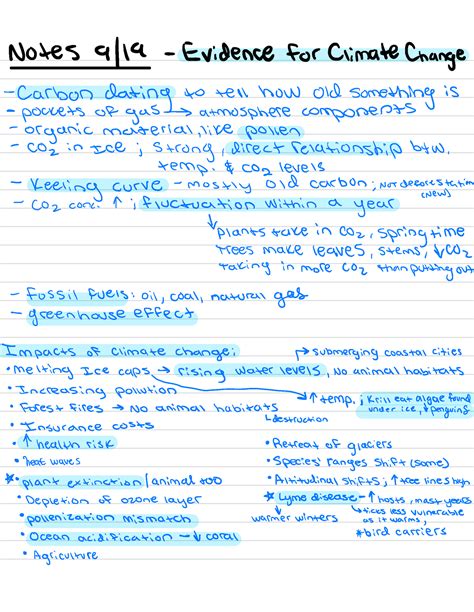 Notes 9/19 - Evidence for Climate Change
- Carbon dating → to tell how old something is
- pockets of gas → atmosphere components
- organic material, like pollen
- CO2 in Ice ; strong, direct relationship btw.
temp. & CO2 levels
- Keeling curve - mostly old carbon; not deforestation
(new)
- CO2 conc. ↑ ; fluctuation within a year
↳ plants take in CO2, springtime
trees make leaves, stems, ↓CO2
taking in more CO2 than putting out
- Fossil fuels: oil, coal, natural gas
- greenhouse effect
Impacts of climate change:
→ submerging coastal cities
• melting Ice caps → rising water levels, No animal habitats
• Increasing pollution
→ ↑ temp. ; Krill eat algae found
under ice, ↓ penguins
• Forest Fires → No animal habitats
↳ destruction
• Insurance costs
• ↑ health risk
• heat waves
* • plant extinction/animal too
• Depletion of ozone layer
• pollenization mismatch
• Ocean acidification → ↓ coral
• Agriculture
• Retreat of glaciers
• Species' ranges shift (some)
• Altitudinal shifts ; ↑ tree lines high
* • Lyme disease - ↑ hosts, mast years
↳ warmer winters
↳ ticks less vulnerable
as it warms,
* bird carriers